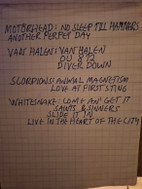 MOTÖRHEAD: NO SLEEP TIL HAMMERS
ANOTHER PERFET DAY
VAN HALEN: VAN HALEN
OU 812
DIVER DOWN
SCORPIONS: ANIMAL MAGNETISM
LOVE AT FIRST STING
WHITESNAKE: COME AN' GET IT
SAINTS & SINNERS
SLIDE IT IN
LIVE IN THE HEART OF THE CITY